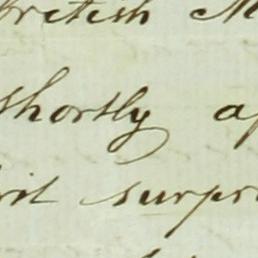 British M
Shortly a
rit surpr